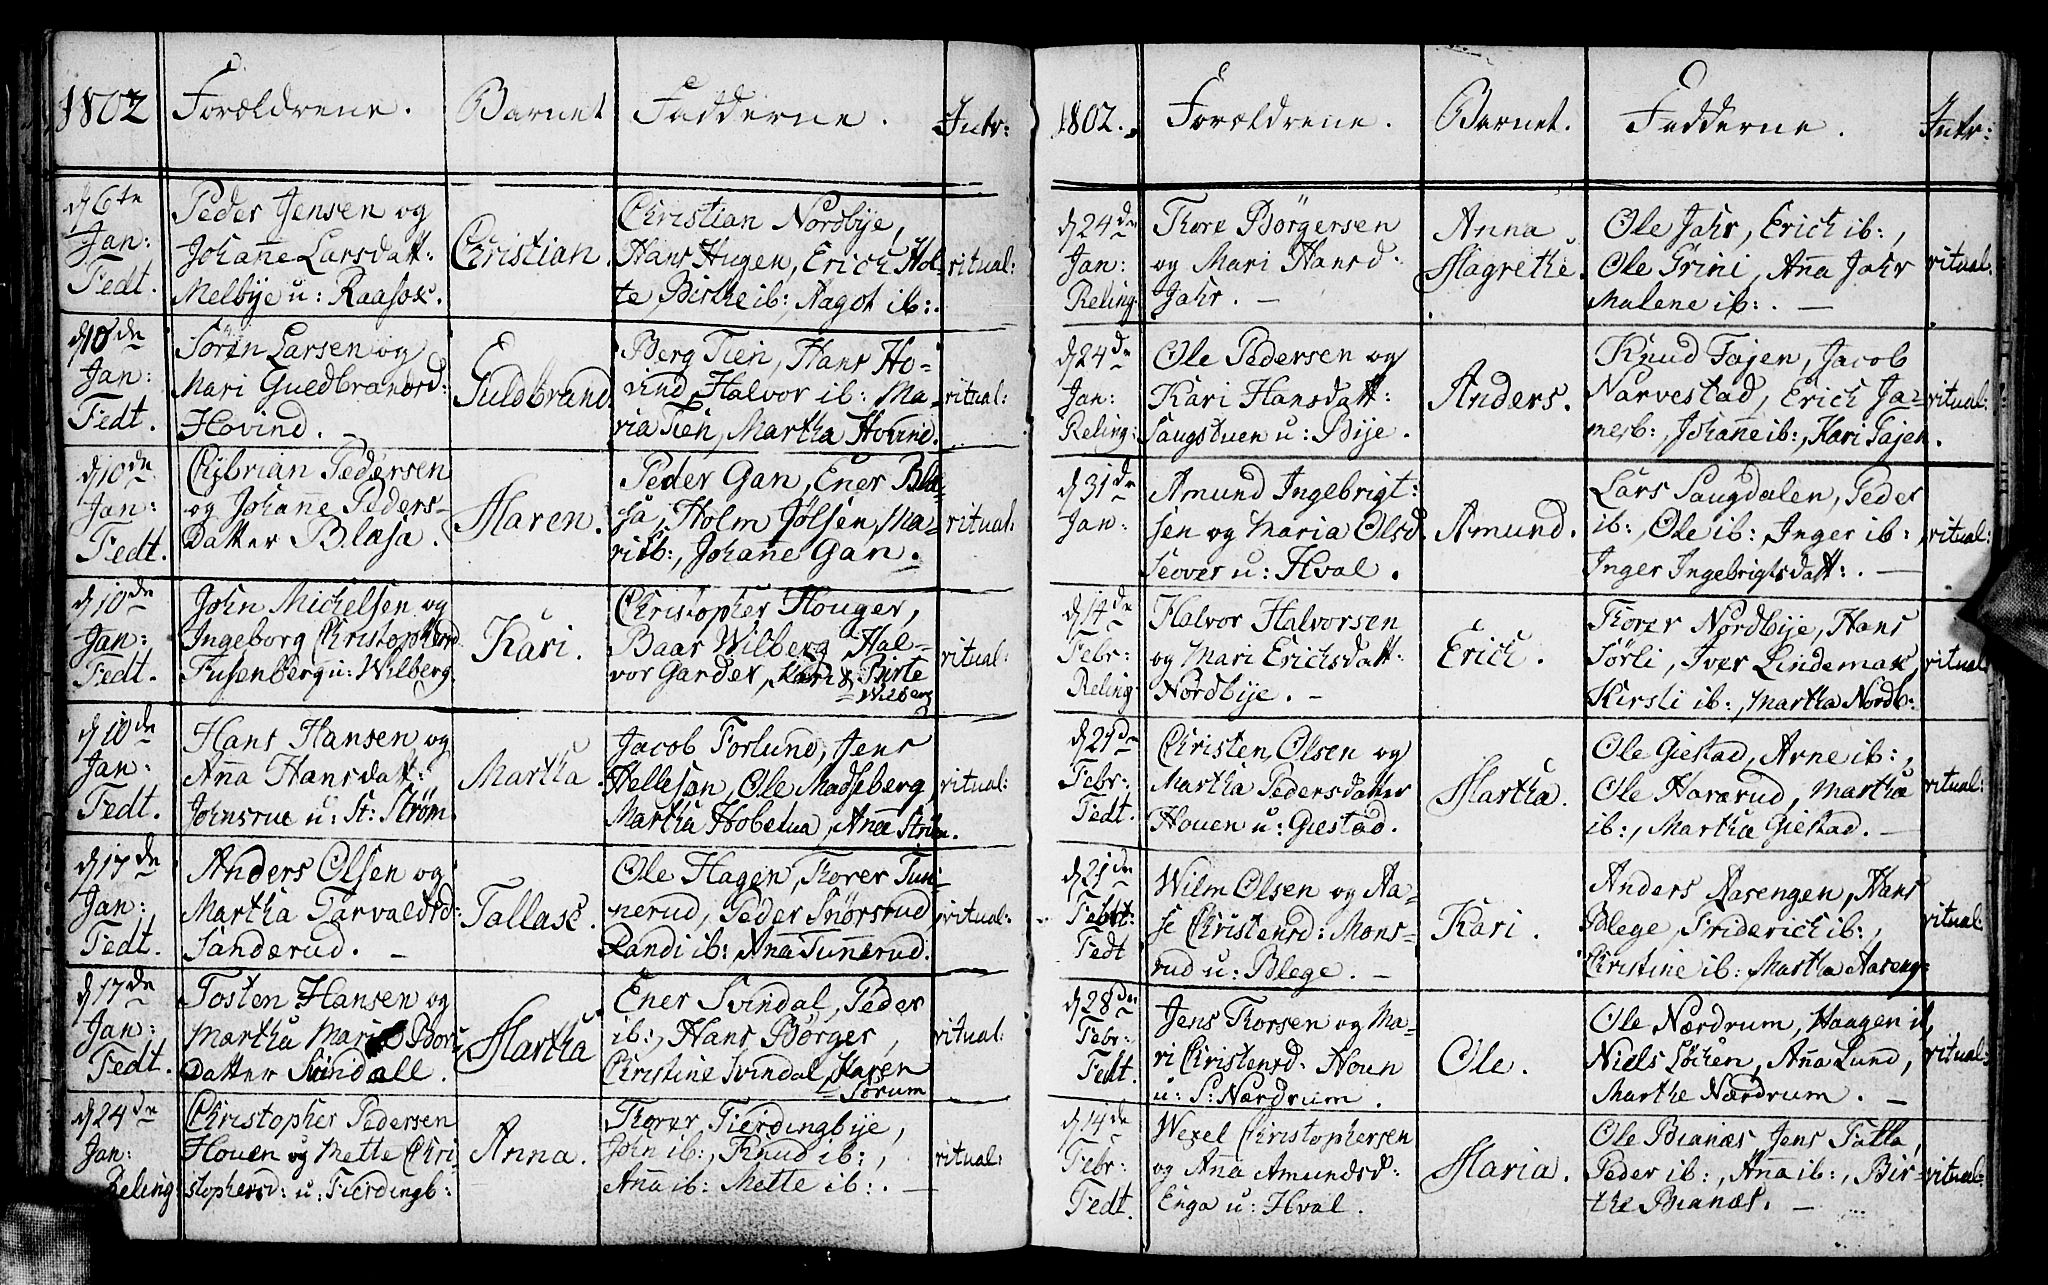 1802 Forældrene. Barnet Fadderne. Intr:
d 6te Jan: Fedt.
Peder Jensen og
Johanne Larsdatt:
Melbye u: Raasox.
Christian.
Christian Nordbye,
Hans Hugen, Erich Hol-
te, Birthe ib: Aagot ib:.
ritual:
d 10de Jan: Fedt.
Sörin Larsen og
Mari Guedbranrd:
Hovind.
Guldbrand.
Berg Tien, Hans Ho-
vind, Halvor ib: Ma-
ria Tien, Martha Hovind.
ritual:
d 10de Jan: Fedt.
Cibrian Pedersen
og Johanne Peders-
Datter Blasa.
Maren.
Peder Gan, Ener Bla-
sa, Holm Jölsen, Ma-
ri ib:, Johanne Gan.
ritual:
d 10de Jan: Fedt.
John Michelsen og
Ingeborg Christophersd
Fusenberg u: Wilberg.
Kari.
Christopher Houger,
Baar Wilberg, Hal-
vor Garder, Kari & Birte
Wilberg
ritual:
d 10de Jan: Fedt.
Hans Hansen og
Anna Hansdatt:
Johnsrue u: St: Strøm.
Martha.
Jacob Forlund, Jens
Hellesan, Ole Madseberg,
Martha Hobelua, Anna Strøm.
ritual:
d 17de Jan: Fedt.
Anders Olsen og
Martha Tarvaldsd:
Sanderud.
Tallase.
Ole Hagen, Torer Tun-
nerud, Peder Snörsrud
Randi ib: Anna Tunnerud.
ritual:
d 17de Jan: Fedt.
Tosten Hansen og
Martha Marie Bor:
Datter Svindall.
Martha
Ener Svindal, Peder
ib:, Hans Börger,
Christine Svindal, Karen
Sörum
ritual:
d 24de Jan: Reling:
Christopher Pedersen
Houen og Mette Chri-
stophersd: u: Fierdingb:
Anna.
Torer Fierdingbye,
John ib:, Knud ib:,
Anna ib: Mette ib:.
ritual:
1802. Forældrene. Barnet. Fadderne. Intr:
d 24de Jan: Reling:
Tore Börgersen
og Mari Hansd:
Jahr.
Anna
Magrethe.
Ole Jahr, Erich ib:,
Ole Grini, Anna Jahr
Malene ib:.
ritual:
d 24de Jan: Reling:
Ole Pedersen og
Kari Hansdatt:
Saugstuen u: Bije.
Anders.
Knud Tajen, Jacob
Narvestad, Erich Ja-
mesb:, Johanne ib:, Kari Tajen.
ritual:
d 31de Jan:
Amund Ingebrigt:
sen og Maria Olsd
Seover u: Hval.
Amund.
Lars Saugdalen, Peder
ib:, Ole ib:, Inger ib:,
Inger Ingebrigtsdatt:.
ritual:
d 14de Febr: Reling:
Halvor Halvorsen
og Mari Erichsdatt:
Nordbije.
Erich.
Torer Nordbije, Hans
Sörli, Iver Lindemax,
Kirsti ib:, Martha Nordb:
ritual:
d 21de Febr: Fedt.
Christen Olsen og
Martha Pedersdatter
Houen u: Giestad.
Martha.
Ole Giestad, Arne ib:,
Ole Hararud, Martha
ib:, Martha Giestad.
ritual:
d 21de Febr: Fedt
Wilm Olsen og Aa-
se Christensd: Mons-
rud u: Blege.
Kari.
Anders Aasengen, Hans
Blege, Friderich ib:,
Christine ib: Martha Aaseng-
ritual
d 28de Febr: Fedt.
Jens Torsen og Ma-
ri Christensd: Houn
u: S: Nærdrum.
Ole.
Ole Nærdrum, Haagen ib,
Niels Löken, Anna Lund,
Marthe Nærdrum.
ritual:
d 14de Febr: Fedt.
Wexel Christophersen
og Anna Amundsd:
Enga u: Hval.
Maria.
Ole Bianæs, Jens Tulla,
Peder ib:, Anna ib:, Bir-
the Bianæs.
ritual: